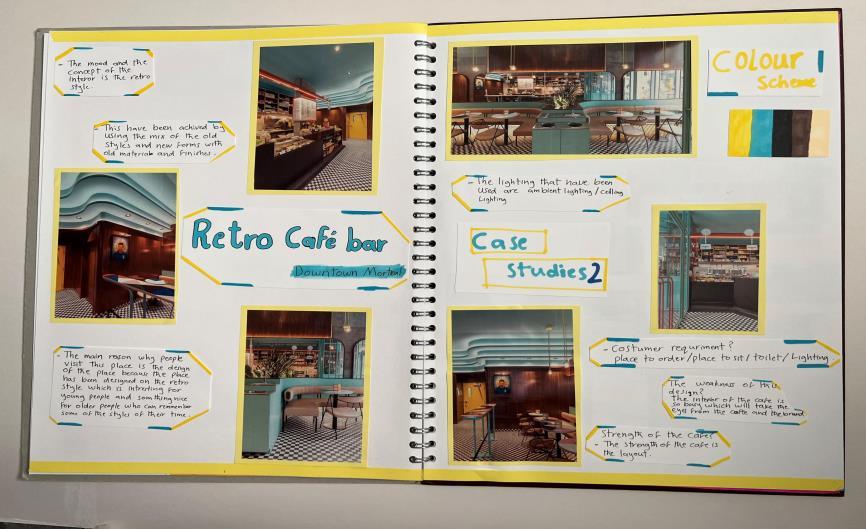 - The mood and the
concept of the
interior is the retro
style.
- This have been achived by
using the mix of the old
styles and new forms with
old material and finishes.
Retro Café bar
Downtown Montreal
- The main reason why people
visit This place is the design
of the place because the place
has been designed on the retro
style which is intresting for
young people and somthing nice
for older people who can remember
som of the styles of their time
Colour 1
Scheme
- The lighting that have been
used are ambient lighting/ceiling
Lighting
Case
Studies 2
- Costumer requrment?
place to order/place to sit/toilet/Lighting
The weakness of this
design?
The interior of the cafe is
so busy which will take the
eyes from the caffe and the brand
Strength of the cafe?
- The strength of the cafe is
the layout.